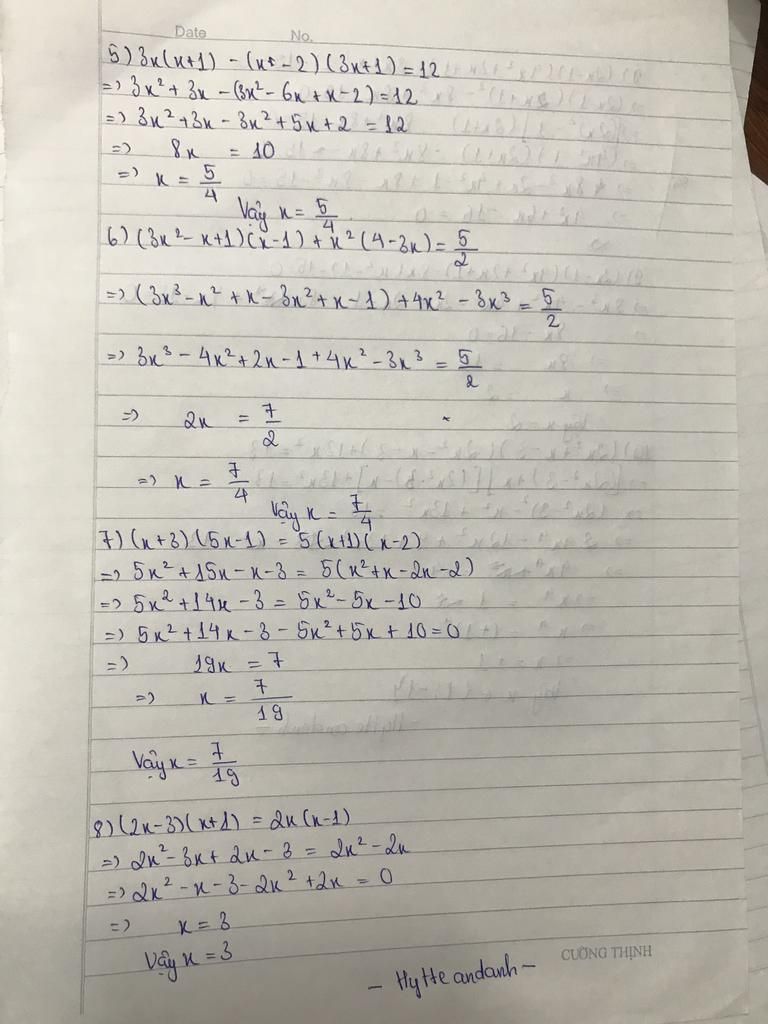 Date No.
5) 3x(x+1) - (x-2)(3x+1) = 12
=> 3x² + 3x - (3x² - 6x + x - 2) = 12
=> 3x² + 3x - 3x² + 5x + 2 = 12
=> 8x = 10
=> x = 5/4
Vậy x = 5/4.
6) (3x² - x + 1)(x - 1) + x²(4 - 3x) = 5/2
=> (3x³ - x² + x - 3x² + x - 1) + 4x² - 3x³ = 5/2
=> 3x³ - 4x² + 2x - 1 + 4x² - 3x³ = 5/2
=> 2x = 7/2
=> x = 7/4
Vậy x = 7/4.
7) (x+3)(5x-1) = 5(x+1)(x-2)
=> 5x² + 15x - x - 3 = 5(x² + x - 2x - 2)
=> 5x² + 14x - 3 = 5x² - 5x - 10
=> 5x² + 14x - 3 - 5x² + 5x + 10 = 0
=> 19x = 7
=> x = 7/19
Vậy x = 7/19
8) (2x-3)(x+1) = 2x(x-1)
=> 2x² - 3x + 2x - 3 = 2x² - 2x
=> 2x² - x - 3 - 2x² + 2x = 0
=> x = 3
Vậy x = 3
CƯỜNG THỊNH